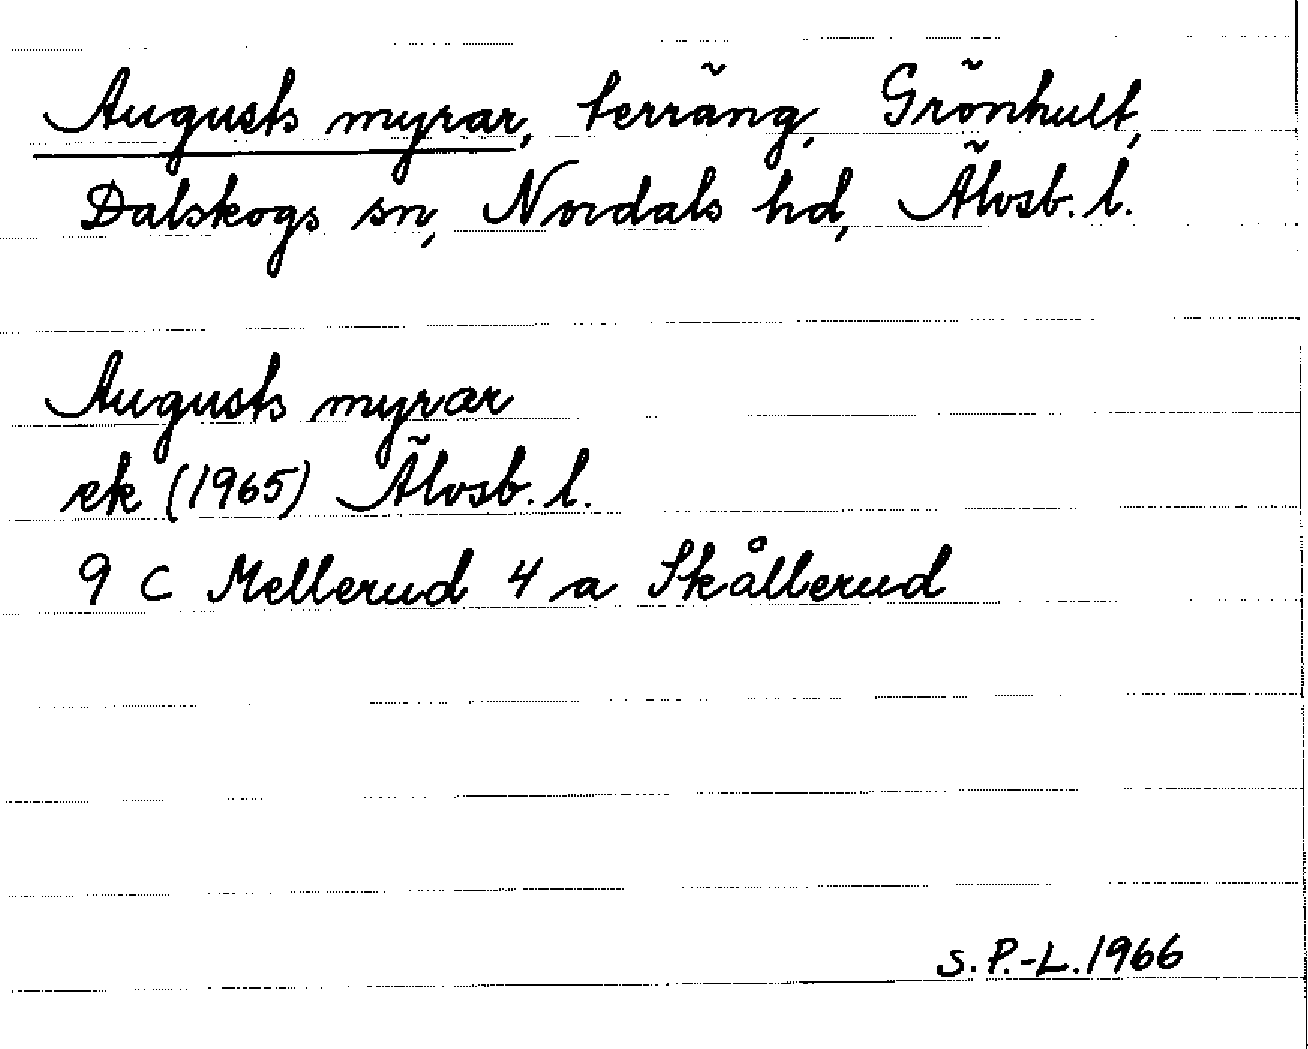 Augusts myrar, terräng, Grönhult,
Dalskogs sn, Nordals hd, Älvsb. l.
Augusts myrar
ek (1965) Älvsb. l.
9 C Mellerud 4 a Skållerud
S. P.-L. 1966